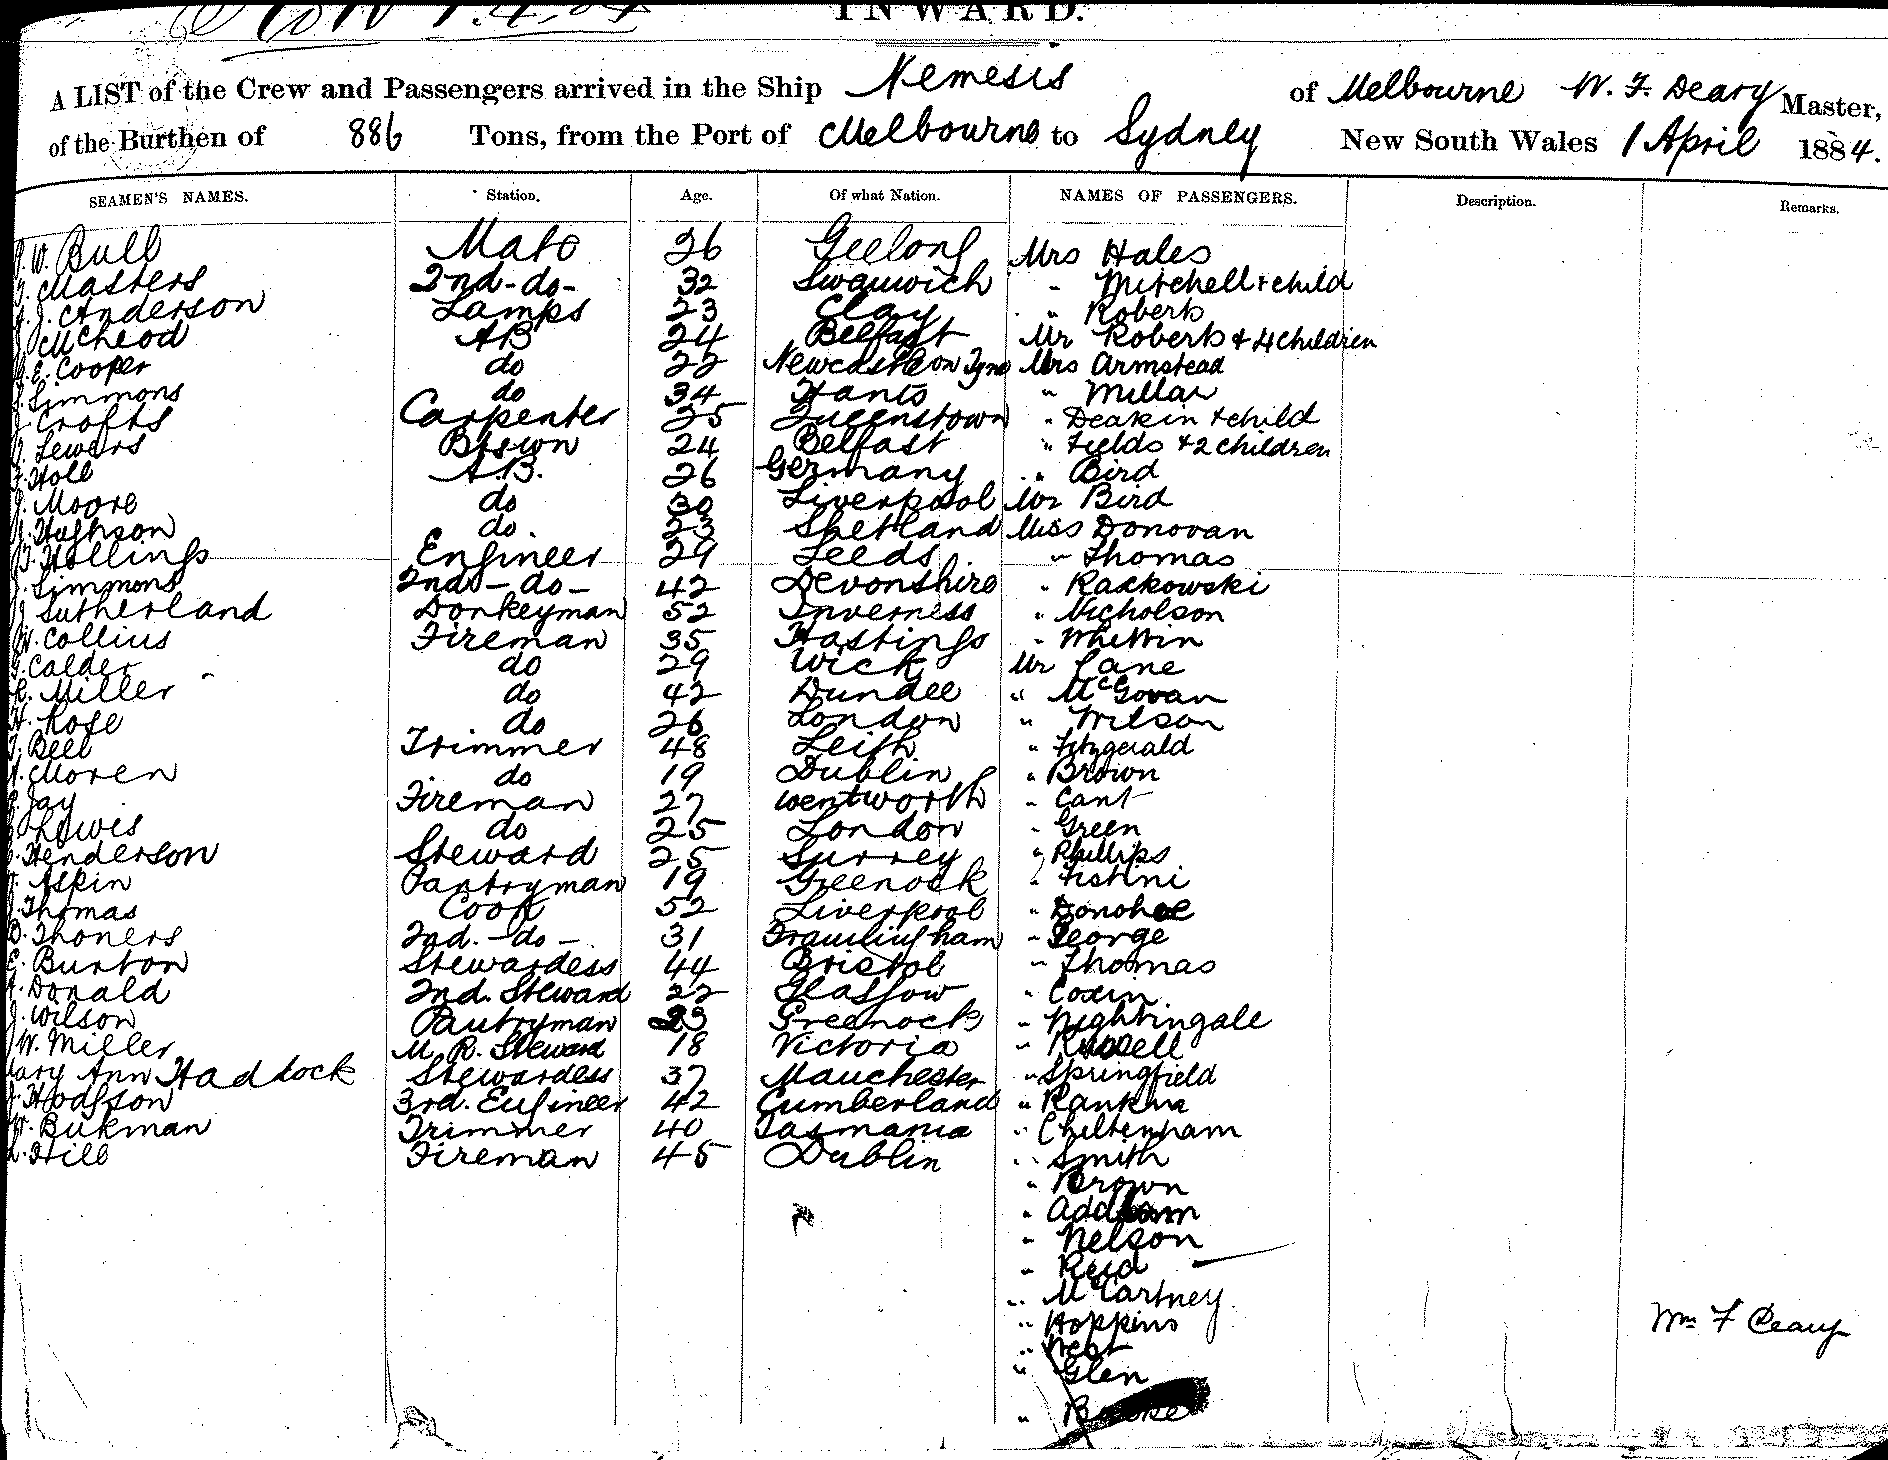 INWARD.
A LIST of the Crew and Passengers arrived in the Ship Nemesis of Melbourne W. F. Deary Master,
of the Burthen of 886 Tons, from the Port of Melbourne to Sydney New South Wales 1 April 1884.
SEAMEN'S NAMES. Station. Age. Of what Nation. NAMES OF PASSENGERS. Description. Remarks.
W. Bull Mate 26 Geelong Mrs Hales
Masters 2nd-do- 32 Swanwich " Mitchell + child
J. Anderson Lamps 23 Clay " Roberts
McLeod AB 24 Belfast Mr Roberts + 4 children
E. Cooper do 22 Newcastle on Tyne Mrs Armstead
Simmons do 34 Hants " Millar
Crofts Carpenter 25 Queenstown " Deakin + child
Lewers Bsswn 24 Belfast " Fields + 2 children
Holl A.B. 26 Germany " Bird
J. Moore do 30 Liverpool Mr Bird
Hughson do. 23 Shetland Miss Donovan
Hollings Engineer 29 Leeds " Thomas
Simmons 2nd-do- 42 Devonshire " Raskowski
J. Sutherland Donkeyman 52 Inverness " Nicholson
W. Collius Fireman 35 Hastings " Whittin
Calder do 29 Wick Mr Lane
Miller do 42 Dundee " McGovan
H. Rose do 26 London " Wilson
Bell Trimmer 48 Leith " Fitzgerald
Moren do 19 Dublin " Brown
Jay Fireman 27 Wentworth " Cant
Lewis do 25 London " Green
Henderson Steward 25 Surrey " Phillips
Aspin Pantryman 19 Greenock " Fistini
Thomas Cook 52 Liverpool " Donohoe
Thoners 2nd.-do- 31 " George
E. Burton Stewardess 44 Bristol " Thomas
Donald 2nd. Steward 22 Glasgow " Coxen
J. Wilson Pantryman 23 Greenock " Nightingale
W. Miller M. R. Steward 18 Victoria " Russell
Mary Ann Haddock Stewardess 37 Manchester " Springfield
Hodgson 3rd. Engineer 42 Cumberland " Rankine
Bukman Trimmer 40 Tasmania " Cheltenham
Hill Fireman 45 Dublin " Smith
" Brown
" Addham
" Nelson
" Reid
" McCartney
" Hoppins
" West
" Glen
Wm F Deary